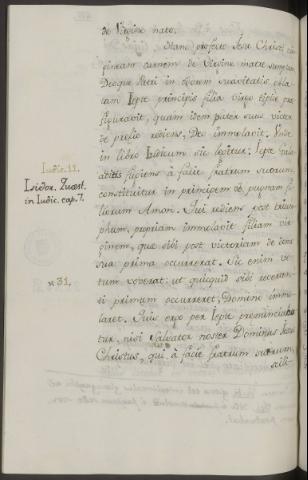 de Virgine nato.
Nam profecto Jesu Christi
pineam carnem de Virgine matre sumptam
Deoque Patri in odorem suavitatis obla-
tam Jepte principis filia virgo
figuravit, quam idem pater suus victor
de prelio rediens, Deo immolavit. Unde
in libro Judicum sic legitur: Jepte Gala-
adites fugiens à facie fratrum suorum,
constituitur in principem ob pugnam fi-
liorum Amon. Qui rediens post trium-
phum, propriam immolavit filiam vir-
ginem, que sibi post victoriam de domo
sua prima occurrerat. Sic enim vo-
tum voverat: ut quicquid sibi reverten-
ti primum occurreret, Domino immo-
laret. Quis ergo per Jepte prenunciaba-
tur, nisi Salvator noster Dominus Jesus
Christus, qui à facie fratrum suorum,
scili-
Judic. 11.
Isidor. Quæst.
in Judic. cap. 7.
v. 31.